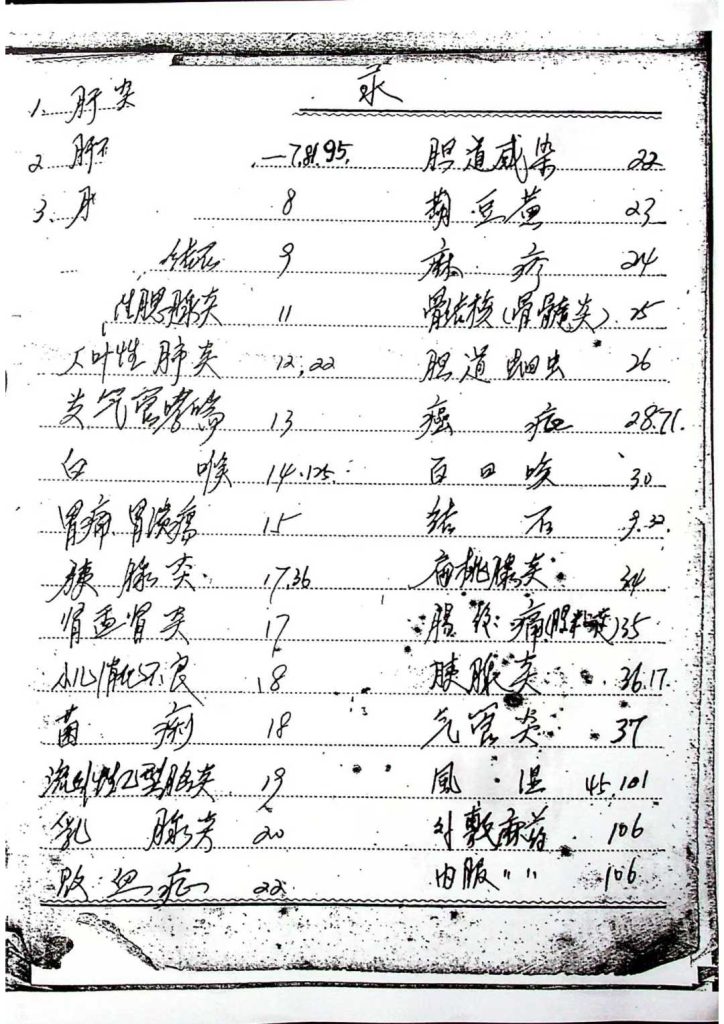 录
1. 肝炎
2. 肝 7,81,95.
3. 8
结石 9
性腮腺炎 11
大叶性肺炎 12,22
支气官哮喘 13
白喉 14.125.
胃痛胃溃疡 15
胰腺炎 17,36
肾盂肾炎 17
小儿消化不良 18
菌痢 18
流行性乙型脑炎 19
乳腺炎 20
败血症 22
胆道感染 22
胡豆黄 23
麻疹 24
骨结核(骨髓炎) 25
胆道蛔虫 26
癌症 28.71.
百日咳 30
结石 9.32.
扁桃腺炎 34
肠绞痛 35
胰腺炎 36.17.
气官炎 37
風湿 45,101
外敷麻药 106
内服〃〃 106